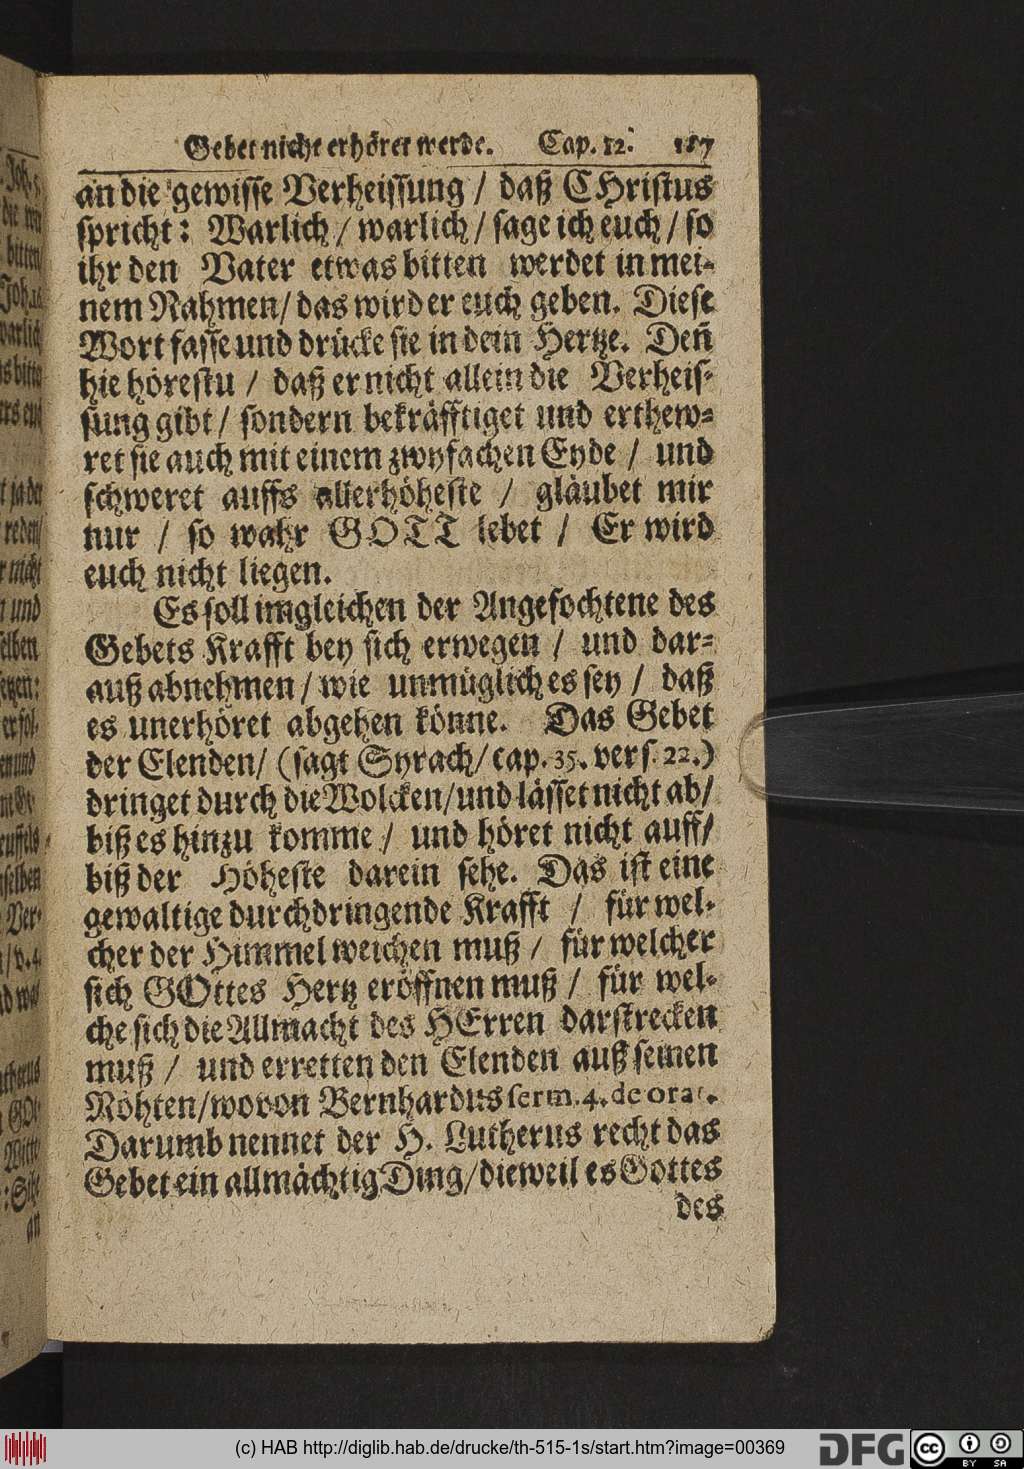 Gebet nicht erhöret werde. Cap. 12. 187
an die gewisse Verheissung / daß CHristus
spricht: Warlich / warlich / sage ich euch / so
ihr den Vater etwas bitten werdet in mei-
nem Nahmen / das wird er euch geben. Diese
Wort fasse und drücke sie in dein Hertze. Deñ
hie hörestu / daß er nicht allein die Verheis-
sung gibt / sondern bekräfftiget und erthew-
ret sie auch mit einem zwyfachen Eyde / und
schweret auffs allerhöheste / gläubet mir
nur / so wahr GOTT lebet / Er wird
euch nicht liegen.
Es soll imgleichen der Angefochtene des
Gebets Krafft bey sich erwegen / und dar-
auß abnehmen / wie unmüglich es sey / daß
es unerhöret abgehen könne. Das Gebet
der Elenden / (sagt Syrach / cap. 35. vers. 22.)
dringet durch die Wolcken / und lässet nicht ab /
biß es hinzu komme / und höret nicht auff /
biß der Höheste darein sehe. Das ist eine
gewaltige durchdringende Krafft / für wel-
cher der Himmel weichen muß / für welcher
sich GOttes Hertz eröffnen muß / für wel-
che sich die Allmacht des HErren darstrecken
muß / und erretten den Elenden auß seinen
Nöhten / wovon Bernhardus serm. 4. de orat.
Darumb nennet der H. Lutherus recht das
Gebet ein allmächtig Ding / dieweil es Gottes
des
(c) HAB http://diglib.hab.de/drucke/th-515-1s/start.htm?image=00369
DFG
cc BY SA